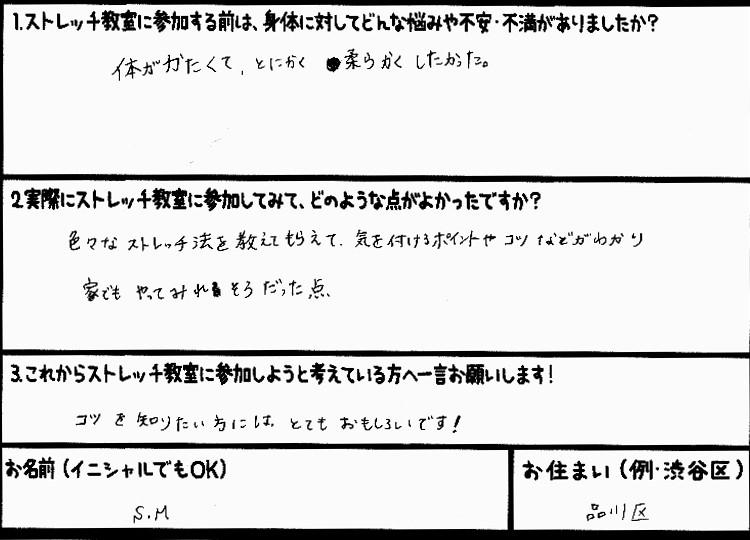 1.ストレッチ教室に参加する前は、身体に対してどんな悩みや不安・不満がありましたか?
体がかたくて、とにかく 柔らかくしたかった。
2.実際にストレッチ教室に参加してみて、どのような点がよかったですか?
色々なストレッチ法を教えてもらえて、気を付けるポイントやコツなどがわかり
家でもやってみれそうだった点、
3.これからストレッチ教室に参加しようと考えている方へ一言お願いします!
コツを知りたい方には、とてもおもしろいです!
お名前(イニシャルでもOK)
S.M
お住まい(例・渋谷区)
品川区